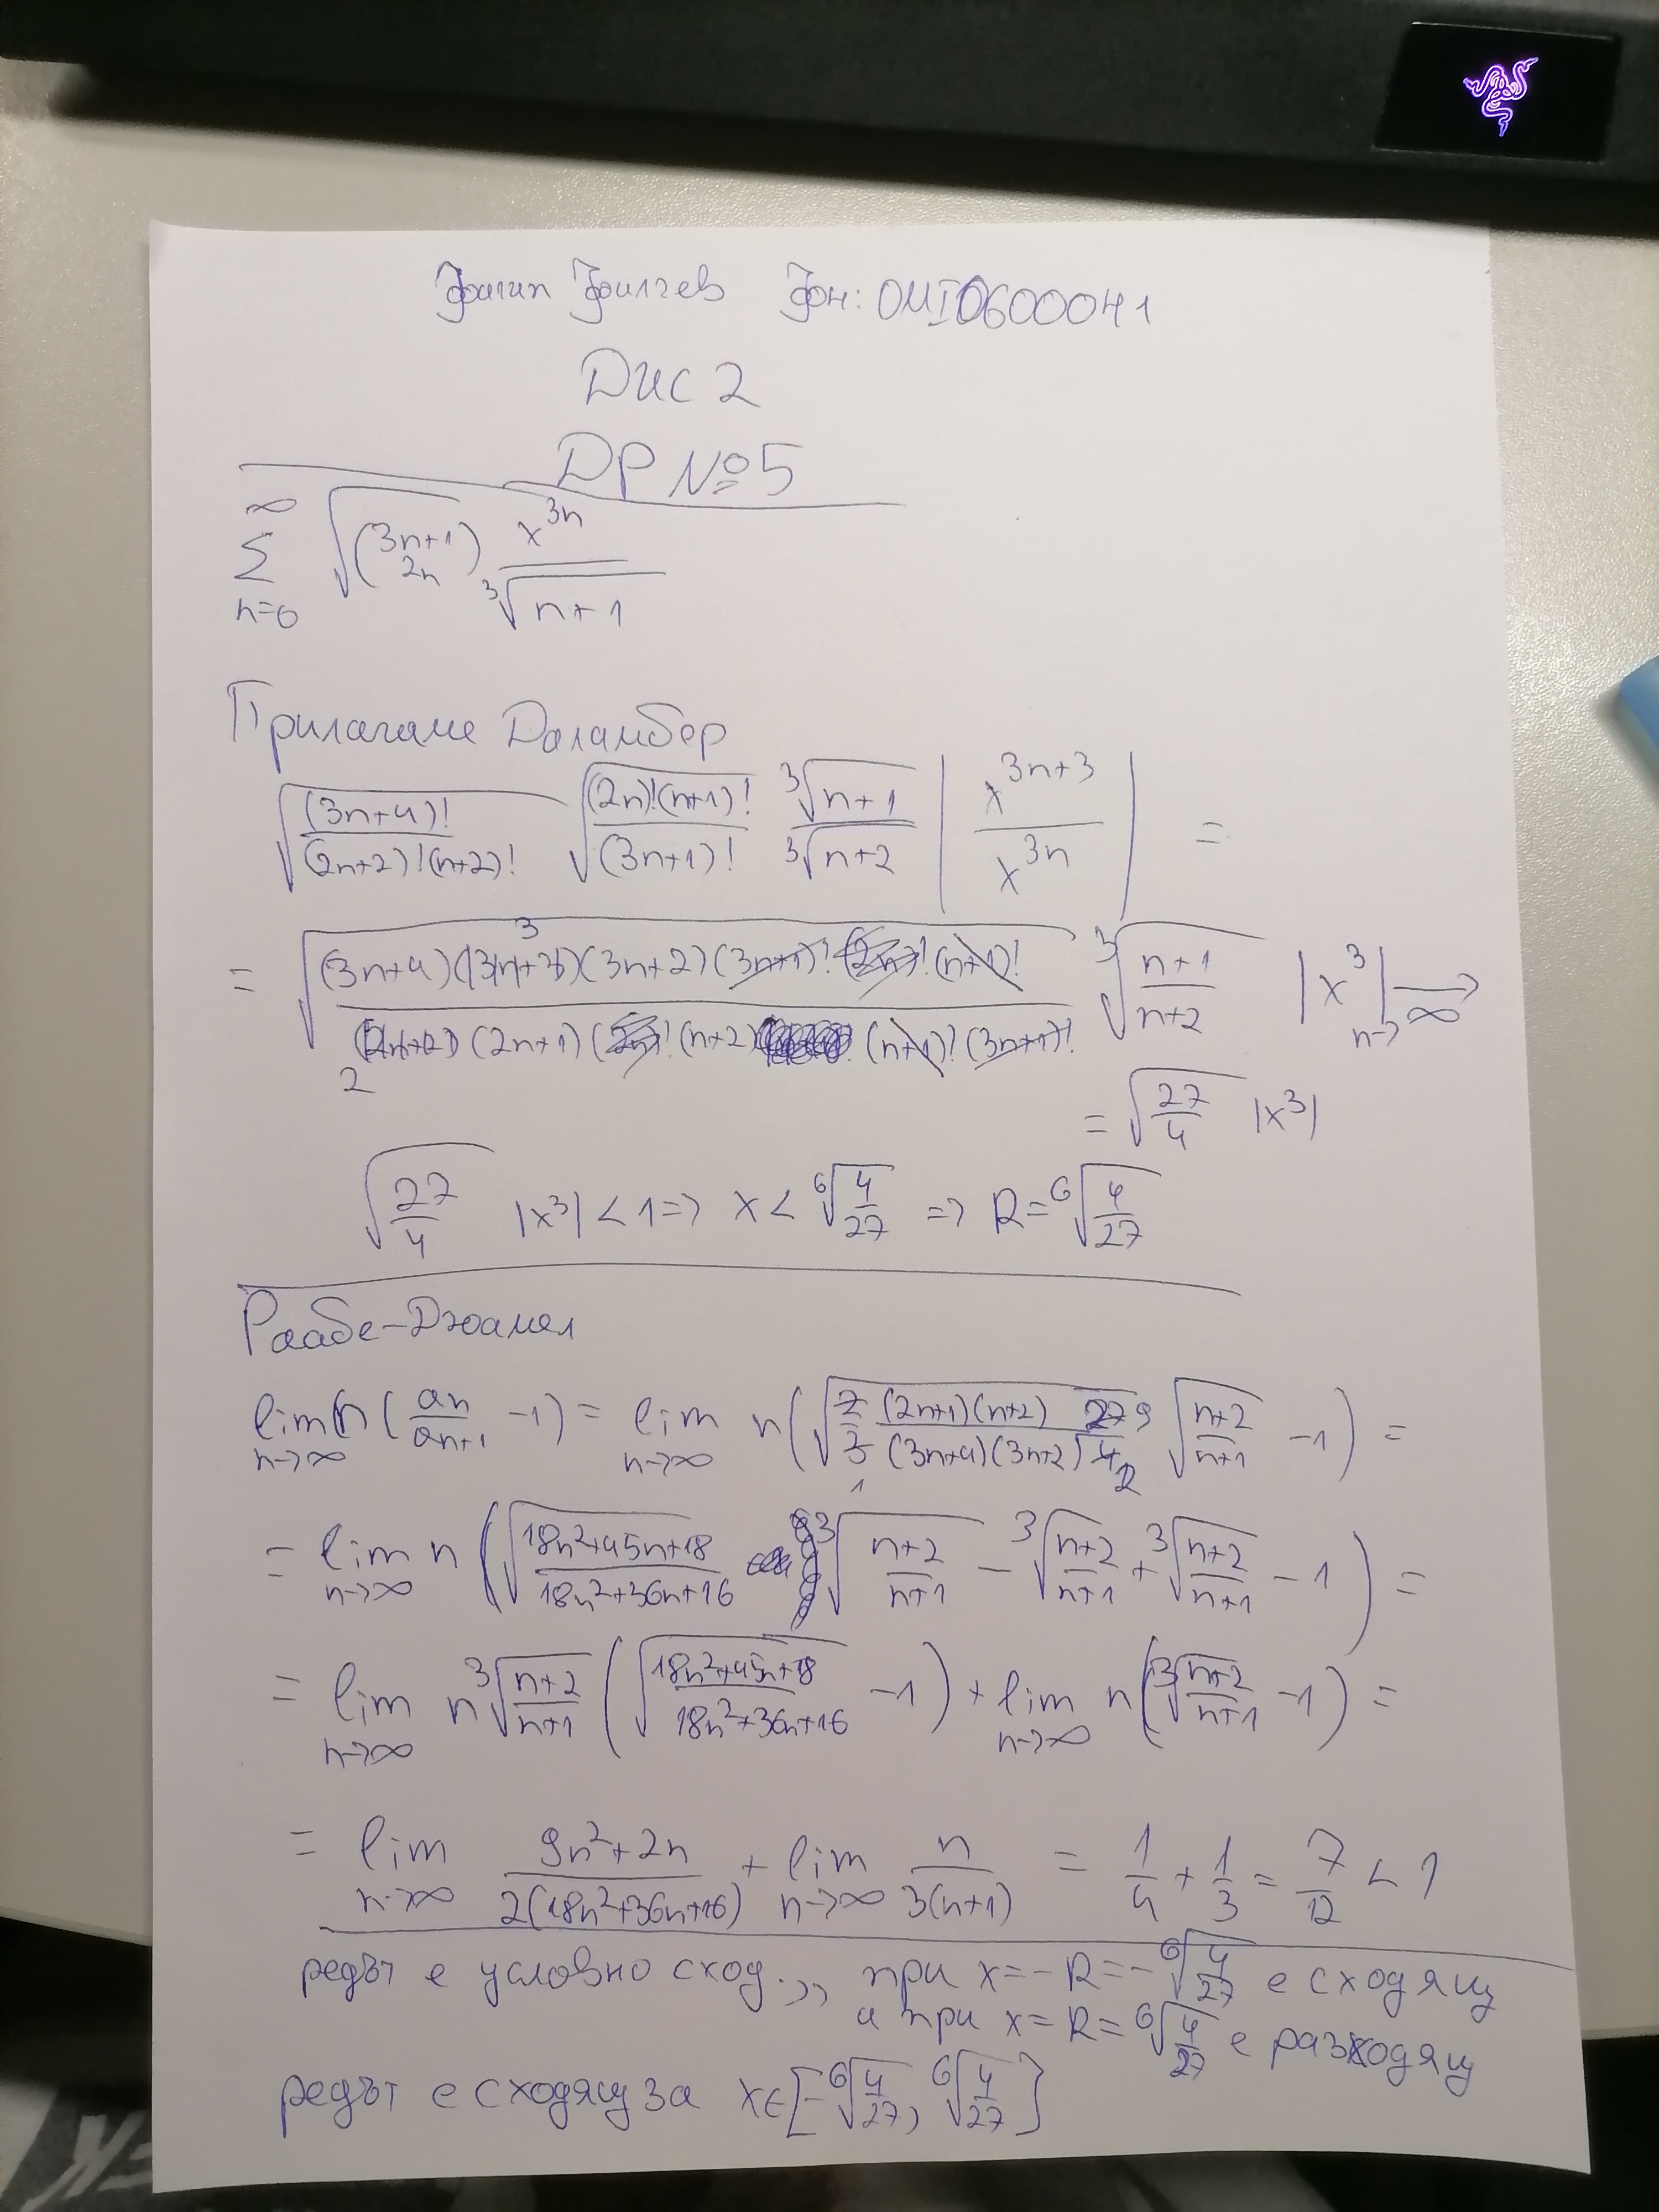 Филип Филчев Фн: 0MI0600041
Дис 2
ДР №5
∞ ∑ n=0 √(3n+1 2n) x^3n / ∛(n+1)
Прилагаме Даламбер
√((3n+4)! / (2n+2)!(n+2)!) √((2n)!(n+1)! / (3n+1)!) ∛(n+1) / ∛(n+2) |x^(3n+3) / x^3n| =
= √((3n+4) 3 (n+1) (3n+2) (3n+1)! (2n)! (n+1)! / 2 (n+1) (2n+1) (2n)! (n+2) (n+1)! (3n+1)!) ∛((n+1)/(n+2)) |x^3| → n→∞
= √(27/4) |x^3|
√(27/4) |x^3| < 1 => x < ⁶√(4/27) => R = ⁶√(4/27)
Раабе-Дюамел
lim n→∞ n(an/an+1 - 1) = lim n→∞ n(√(2/3 (2n+1)(n+2) 27 9 / (3n+4)(3n+2) 4 2) √((n+2)/(n+1)) - 1) =
= lim n→∞ n(√((18n²+45n+18)/(18n²+36n+16)) ∛((n+2)/(n+1)) - ∛((n+2)/(n+1)) + ∛((n+2)/(n+1)) - 1) =
= lim n→∞ n ∛((n+2)/(n+1)) (√((18n²+45n+18)/(18n²+36n+16)) - 1) + lim n→∞ n(∛((n+2)/(n+1)) - 1) =
= lim n→∞ (9n²+2n) / 2(18n²+36n+16) + lim n→∞ n / 3(n+1) = 1/4 + 1/3 = 7/12 < 1
редът е условно сход., при x = -R = -⁶√(4/27) е сходящ
а при x = R = ⁶√(4/27) е разходящ
редът е сходящ за x∈[-⁶√(4/27), ⁶√(4/27)}